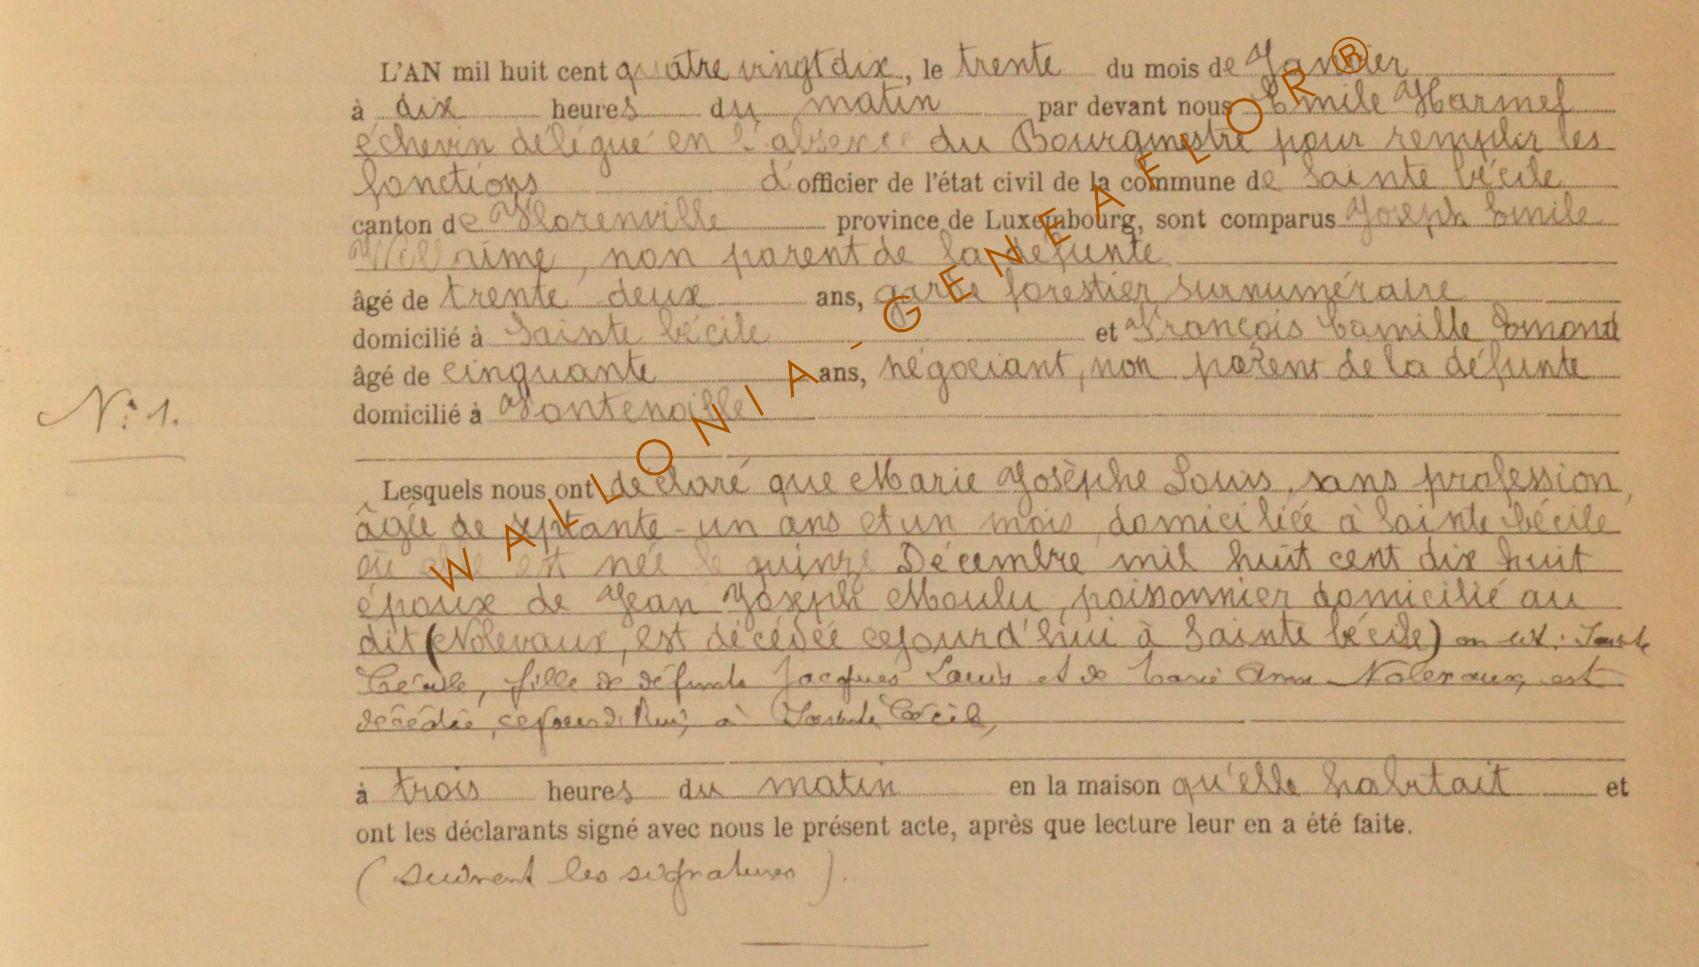 L'AN mil huit cent quatre vingt dix, le trente du mois de Janvier
à dix heures du matin par devant nous Emile Harmel
échevin délégué en l'absence du Bourgmestre pour remplir les
fonctions d'officier de l'état civil de la commune de Sainte Cécile
canton de Florenville province de Luxembourg, sont comparus Joseph Emile
Willaime, non parent de la défunte
âgé de trente deux ans, garde forestier surnuméraire
domicilié à Sainte Cécile et François Camille Emond
âgé de cinquante ans, négociant, non parent de la défunte
N° 1. domicilié à Fontenoille
Lesquels nous ont déclaré que Marie Josèphe Louis, sans profession,
âgée de septante-un ans et un mois, domiciliée à Sainte Cécile
où elle est née le quinze Décembre mil huit cent dix huit
époux de Jean Joseph Moulu, poissonnier domicilié au
dit (Nolevaux, est décédée cejourd'hui à Sainte Cécile) Sainte
Cécile, fille de défunts Jacques Louis et de Marie Anne Nolevaux, est
décédée, cejourd'hui, à Sainte Cécile,
à trois heures du matin en la maison qu'elle habitait et
ont les déclarants signé avec nous le présent acte, après que lecture leur en a été faite.
(suivent les signatures).
WALLONIA-GENEAFLOR®